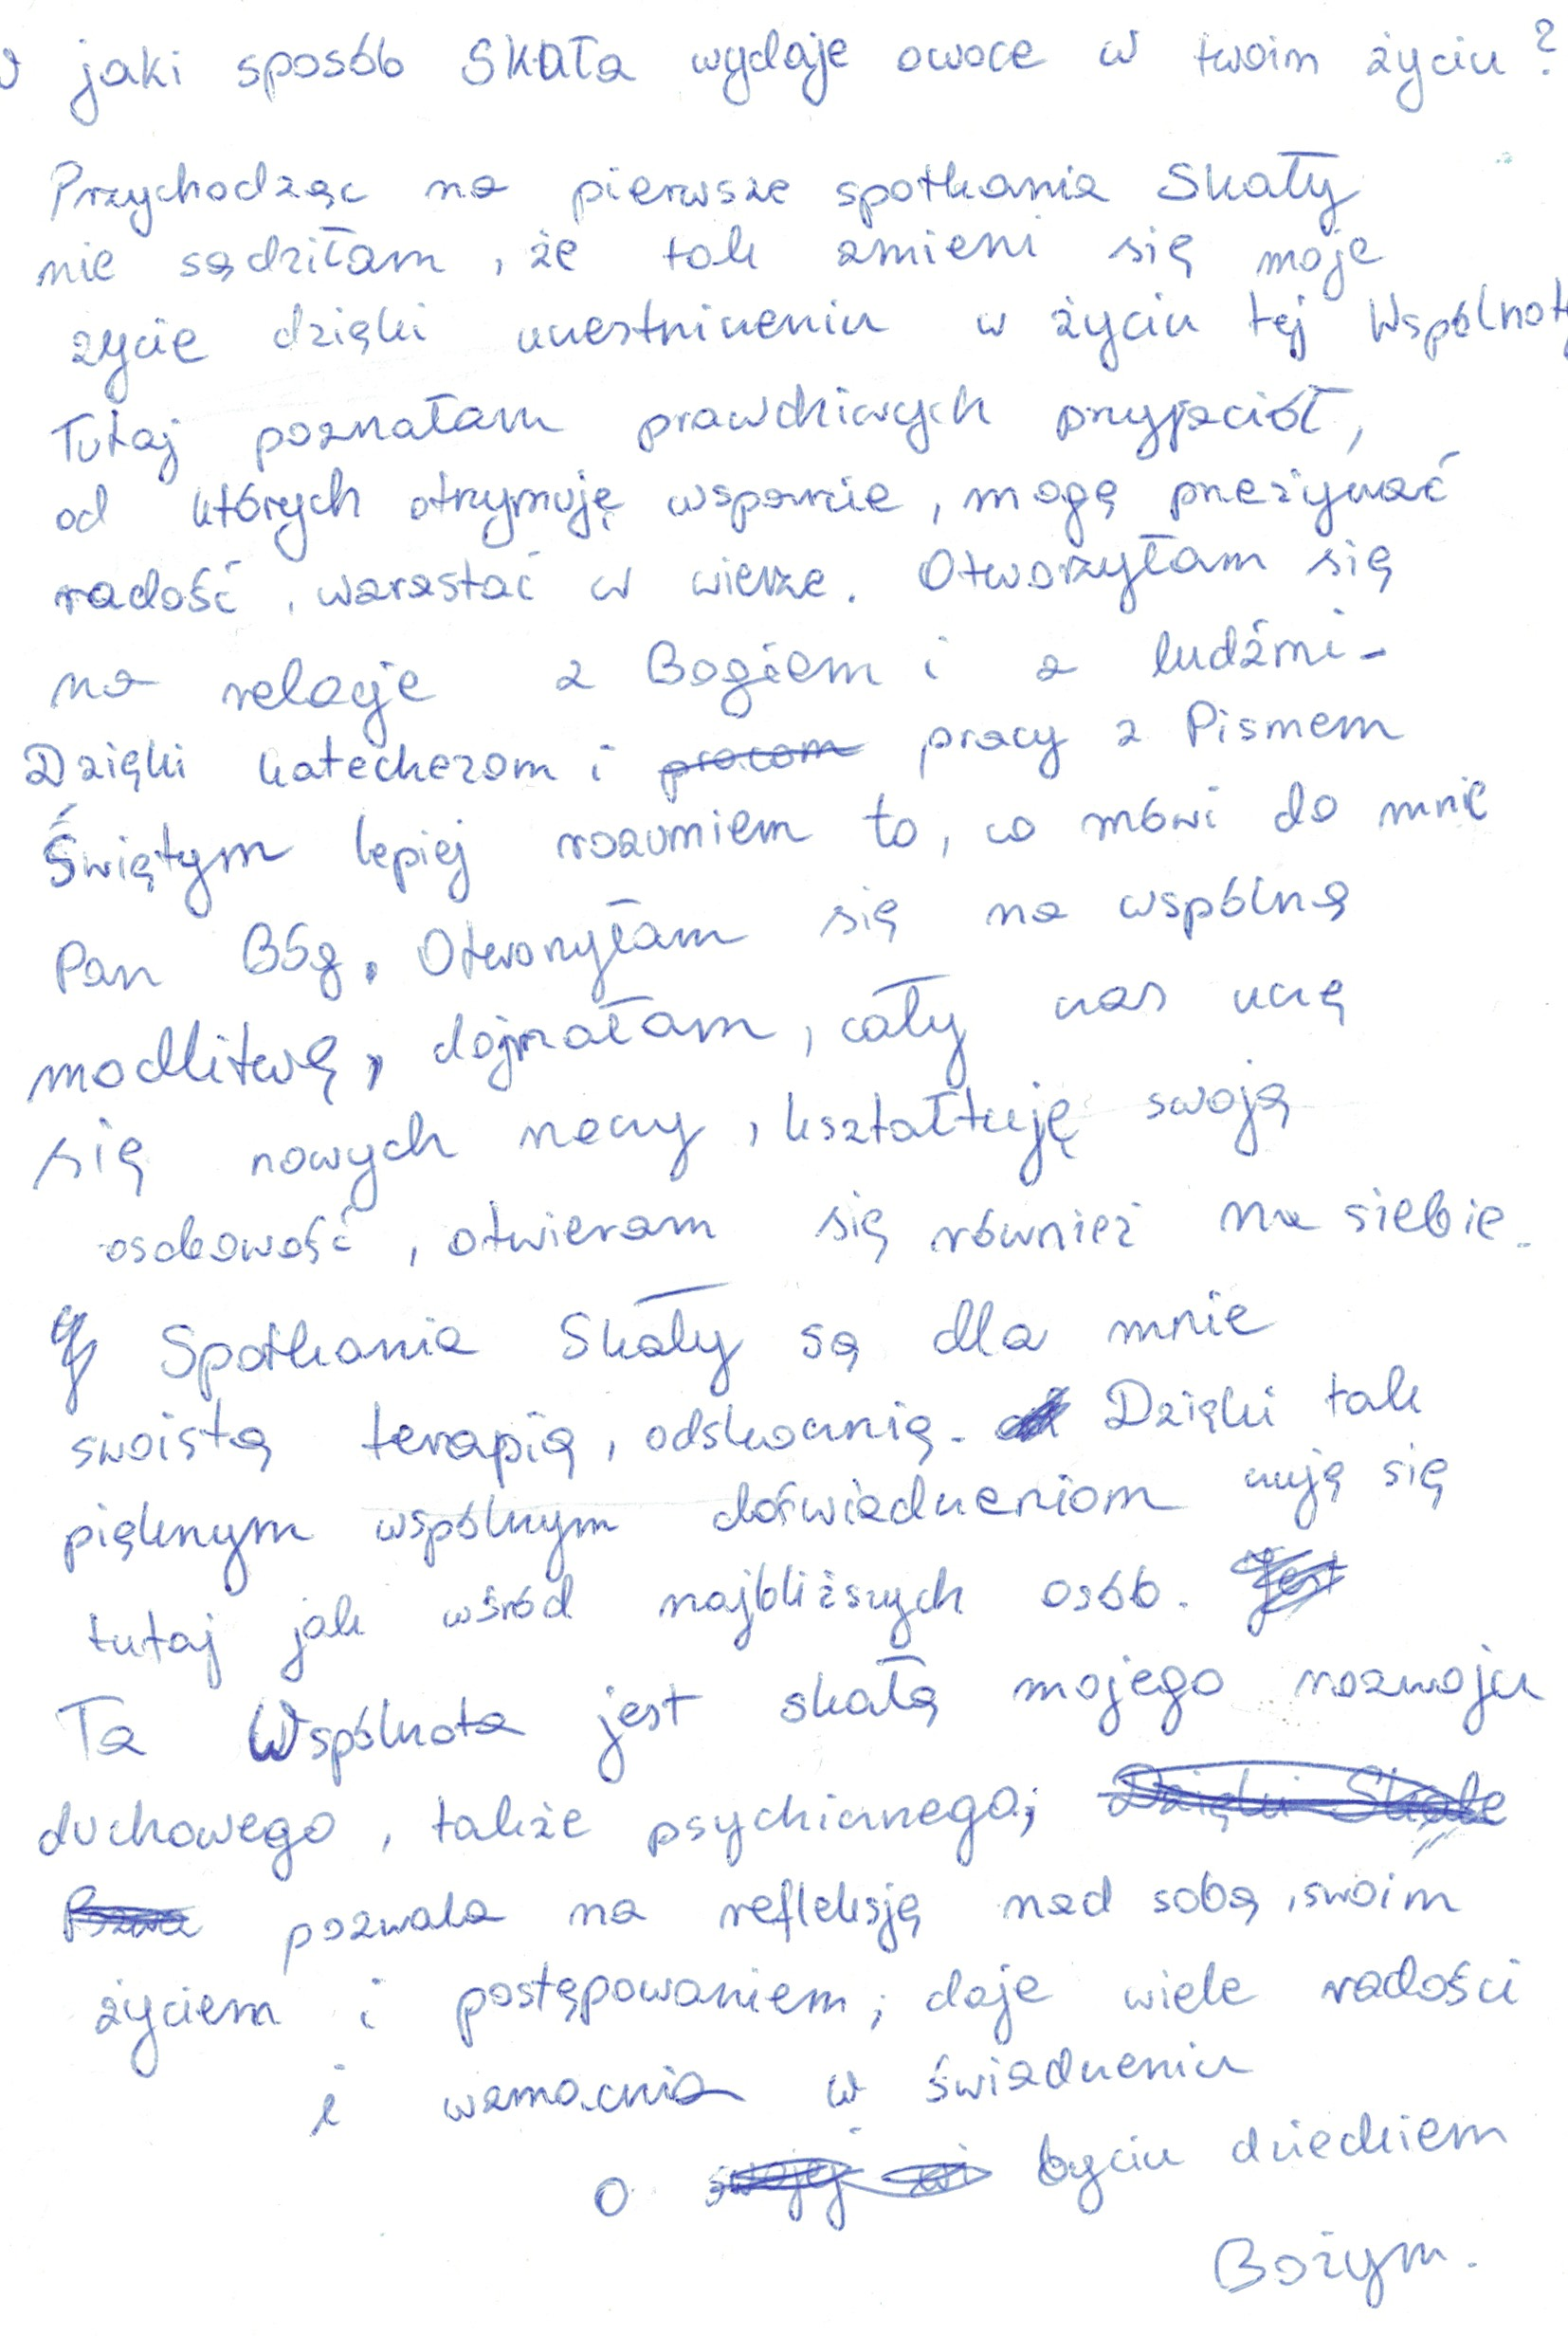 W jaki sposób SKAŁA wydaje owoce w twoim życiu?
Przychodząc na pierwsze spotkania Skały
nie sądziłam, że tak zmieni się moje
życie dzięki uczestniczeniu w życiu tej Wspólnoty
Tutaj poznałam prawdziwych przyjaciół,
od których otrzymuję wsparcie, mogę przeżywać
radość, wzrastać w wierze. Otworzyłam się
na relacje z Bogiem i z ludźmi.
Dzięki katechezom i ~~pracom~~ pracy z Pismem
Świętym lepiej rozumiem to, co mówi do mnie
Pan Bóg. Otworzyłam się na wspólną
modlitwę, dojrzałam, cały czas uczę
się nowych rzeczy, kształtuję swoją
osobowość, otwieram się również na siebie.
Spotkania Skały są dla mnie
swoistą terapią, odskocznią. Dzięki tak
pięknym wspólnym doświadczeniom czuję się
tutaj jak wśród najbliższych osób. ~~Jest~~
Ta Wspólnota jest skałą mojego rozwoju
duchowego, także psychicznego; ~~Dzięki Skale~~
pozwala na refleksję nad sobą, swoim
życiem i postępowaniem; daje wiele radości
i wzmacnia w świadczeniu
o ~~swojej wi~~ byciu dzieckiem
Bożym.